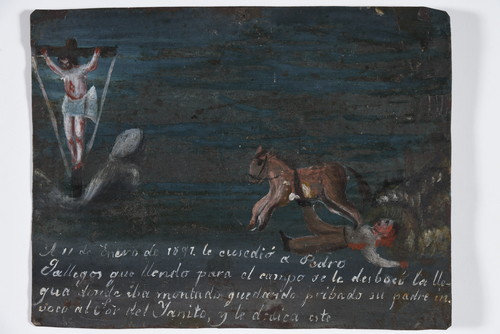 A 11 de Enero de 1897. le susedió a Pedro
Gallegos que llendo para el campo se le desbocó la lle
gua donde iba montado quedando pribado su padre in
vocó al Sor del Yanito, y le dedica este